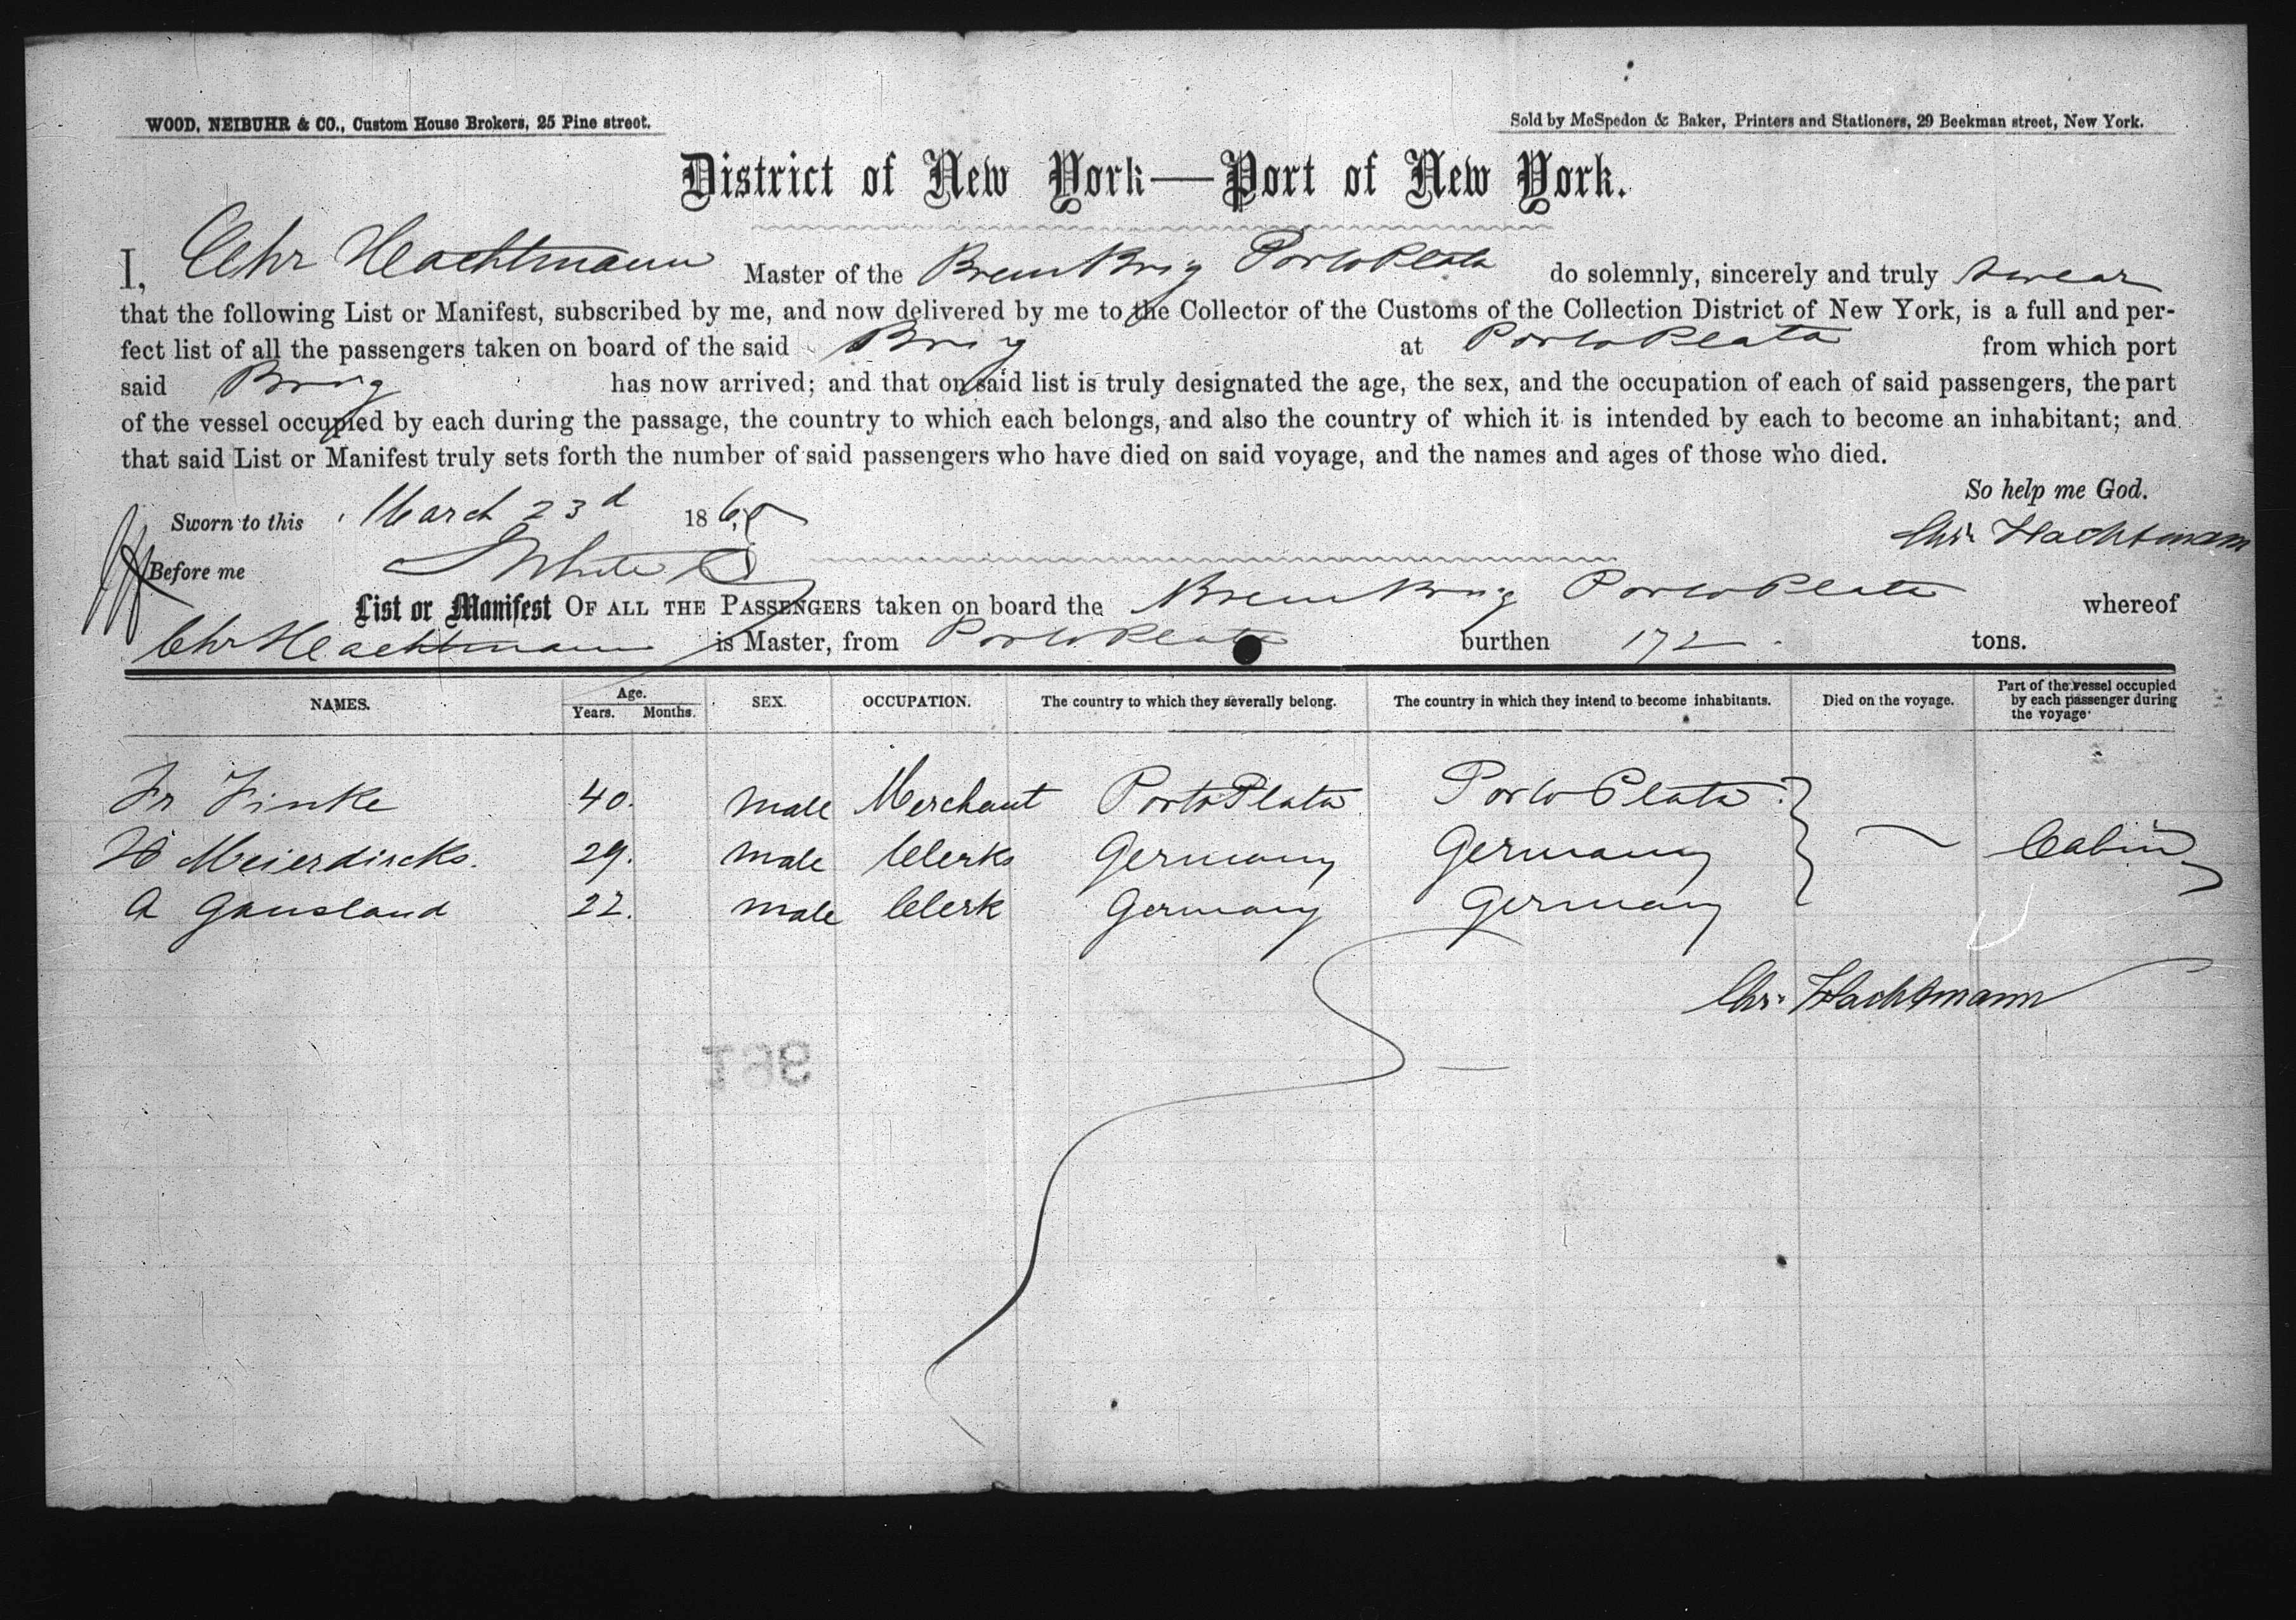 WOOD, NEIBUHR & CO., Custom House Brokers, 25 Pine street.
Sold by McSpedon & Baker, Printers and Stationers, 29 Beekman street, New York.
District of New York—Port of New York.
I, Chr Hachtmann Master of the Brem Brig Porto Plata do solemnly, sincerely and truly swear
that the following List or Manifest, subscribed by me, and now delivered by me to the Collector of the Customs of the Collection District of New York, is a full and per-
fect list of all the passengers taken on board of the said Brig at Porto Plata from which port
said Brig has now arrived; and that on said list is truly designated the age, the sex, and the occupation of each of said passengers, the part
of the vessel occupied by each during the passage, the country to which each belongs, and also the country of which it is intended by each to become an inhabitant; and
that said List or Manifest truly sets forth the number of said passengers who have died on said voyage, and the names and ages of those who died.
So help me God.
Sworn to this March 23d 186
Chr. Hachtmann
Before me White
List or Manifest OF ALL THE PASSENGERS taken on board the Brem Brig Porto Plata whereof
Chr Hachtmann is Master, from Porto Plata burthen 172 tons.
NAMES. Age. Years. Months. SEX. OCCUPATION. The country to which they severally belong. The country in which they intend to become inhabitants. Died on the voyage. Part of the vessel occupied by each passenger during the voyage
Fr Finke 40. male Merchant Porto Plata Porto Plata.
H Meierdircks. 29. male Clerk Germany Germany — Cabin
A Gausland 22. male Clerk Germany Germany
Chr. Hachtmann